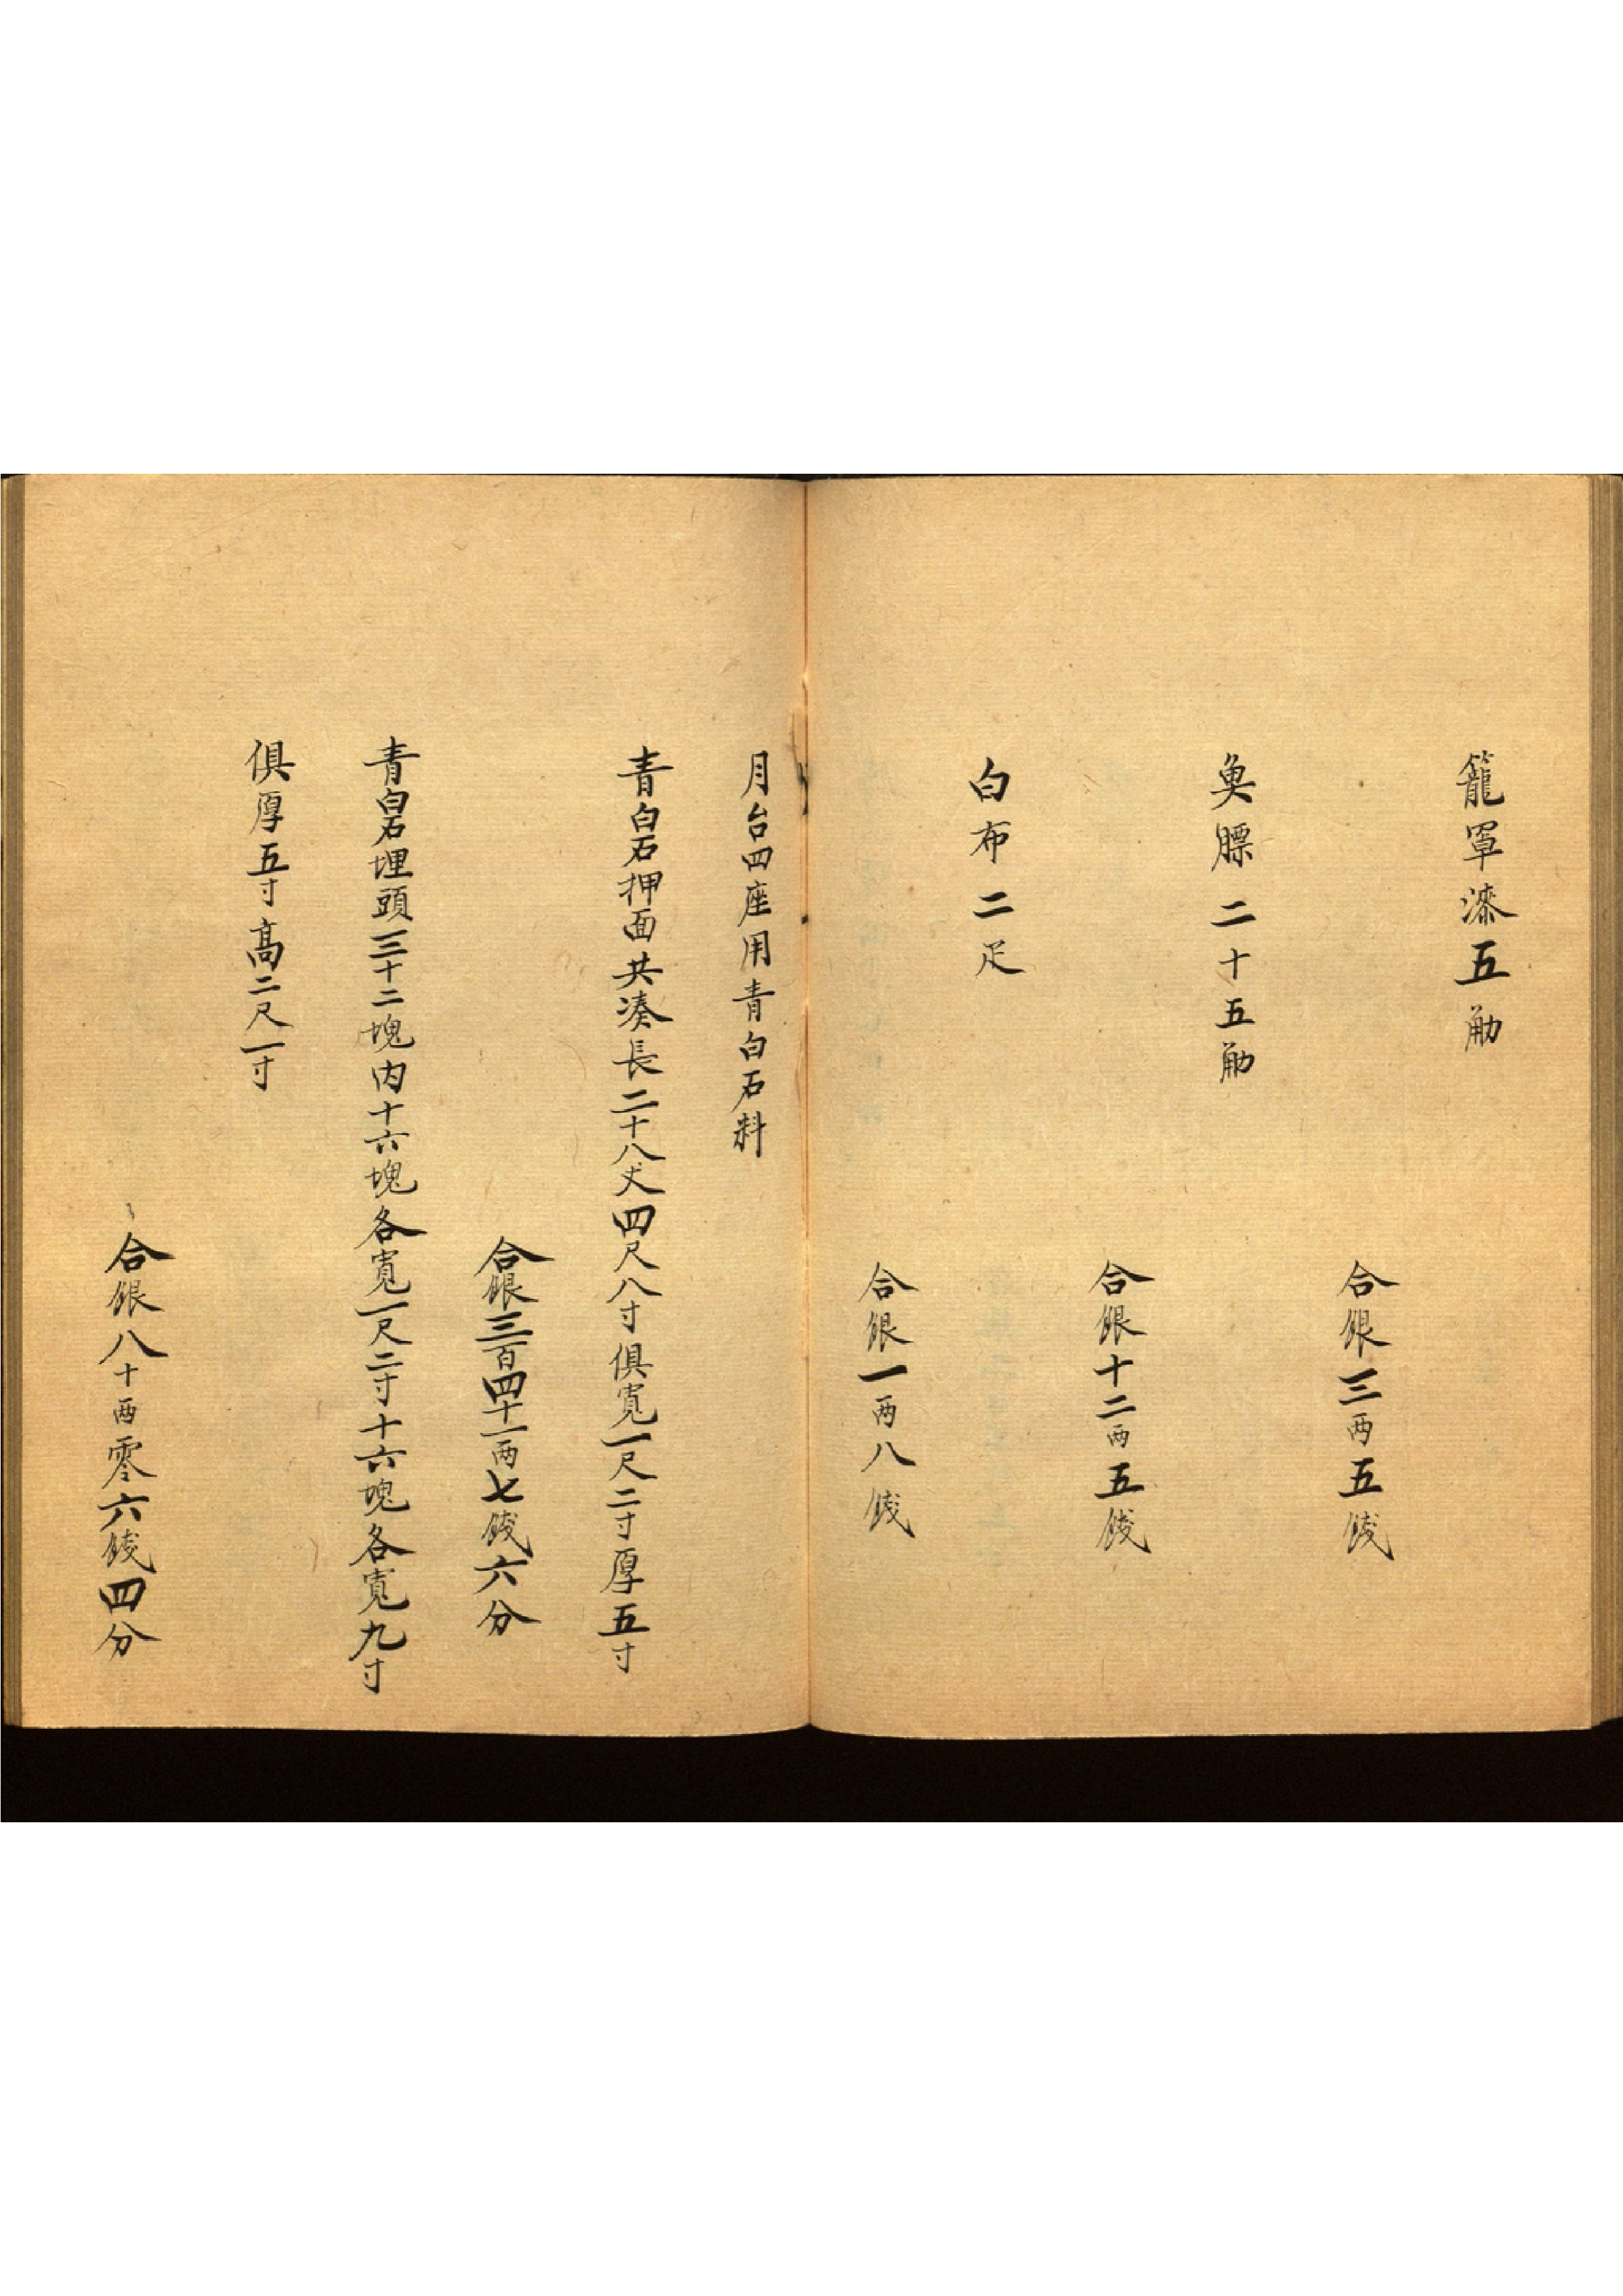 籠罩漆五觔
合銀三两五錢
魚膘二十五觔
合銀十二两五錢
白布二疋
合銀一两八錢
月台四座用青白石料
青白石押面共凑長二十八丈四尺八寸俱寬一尺二寸厚五寸
合銀三百四十一两七錢六分
青白石埋頭三十二塊内十六塊各寬一尺二寸十六塊各寬九寸
俱厚五寸高二尺一寸
合銀八十两零六錢四分